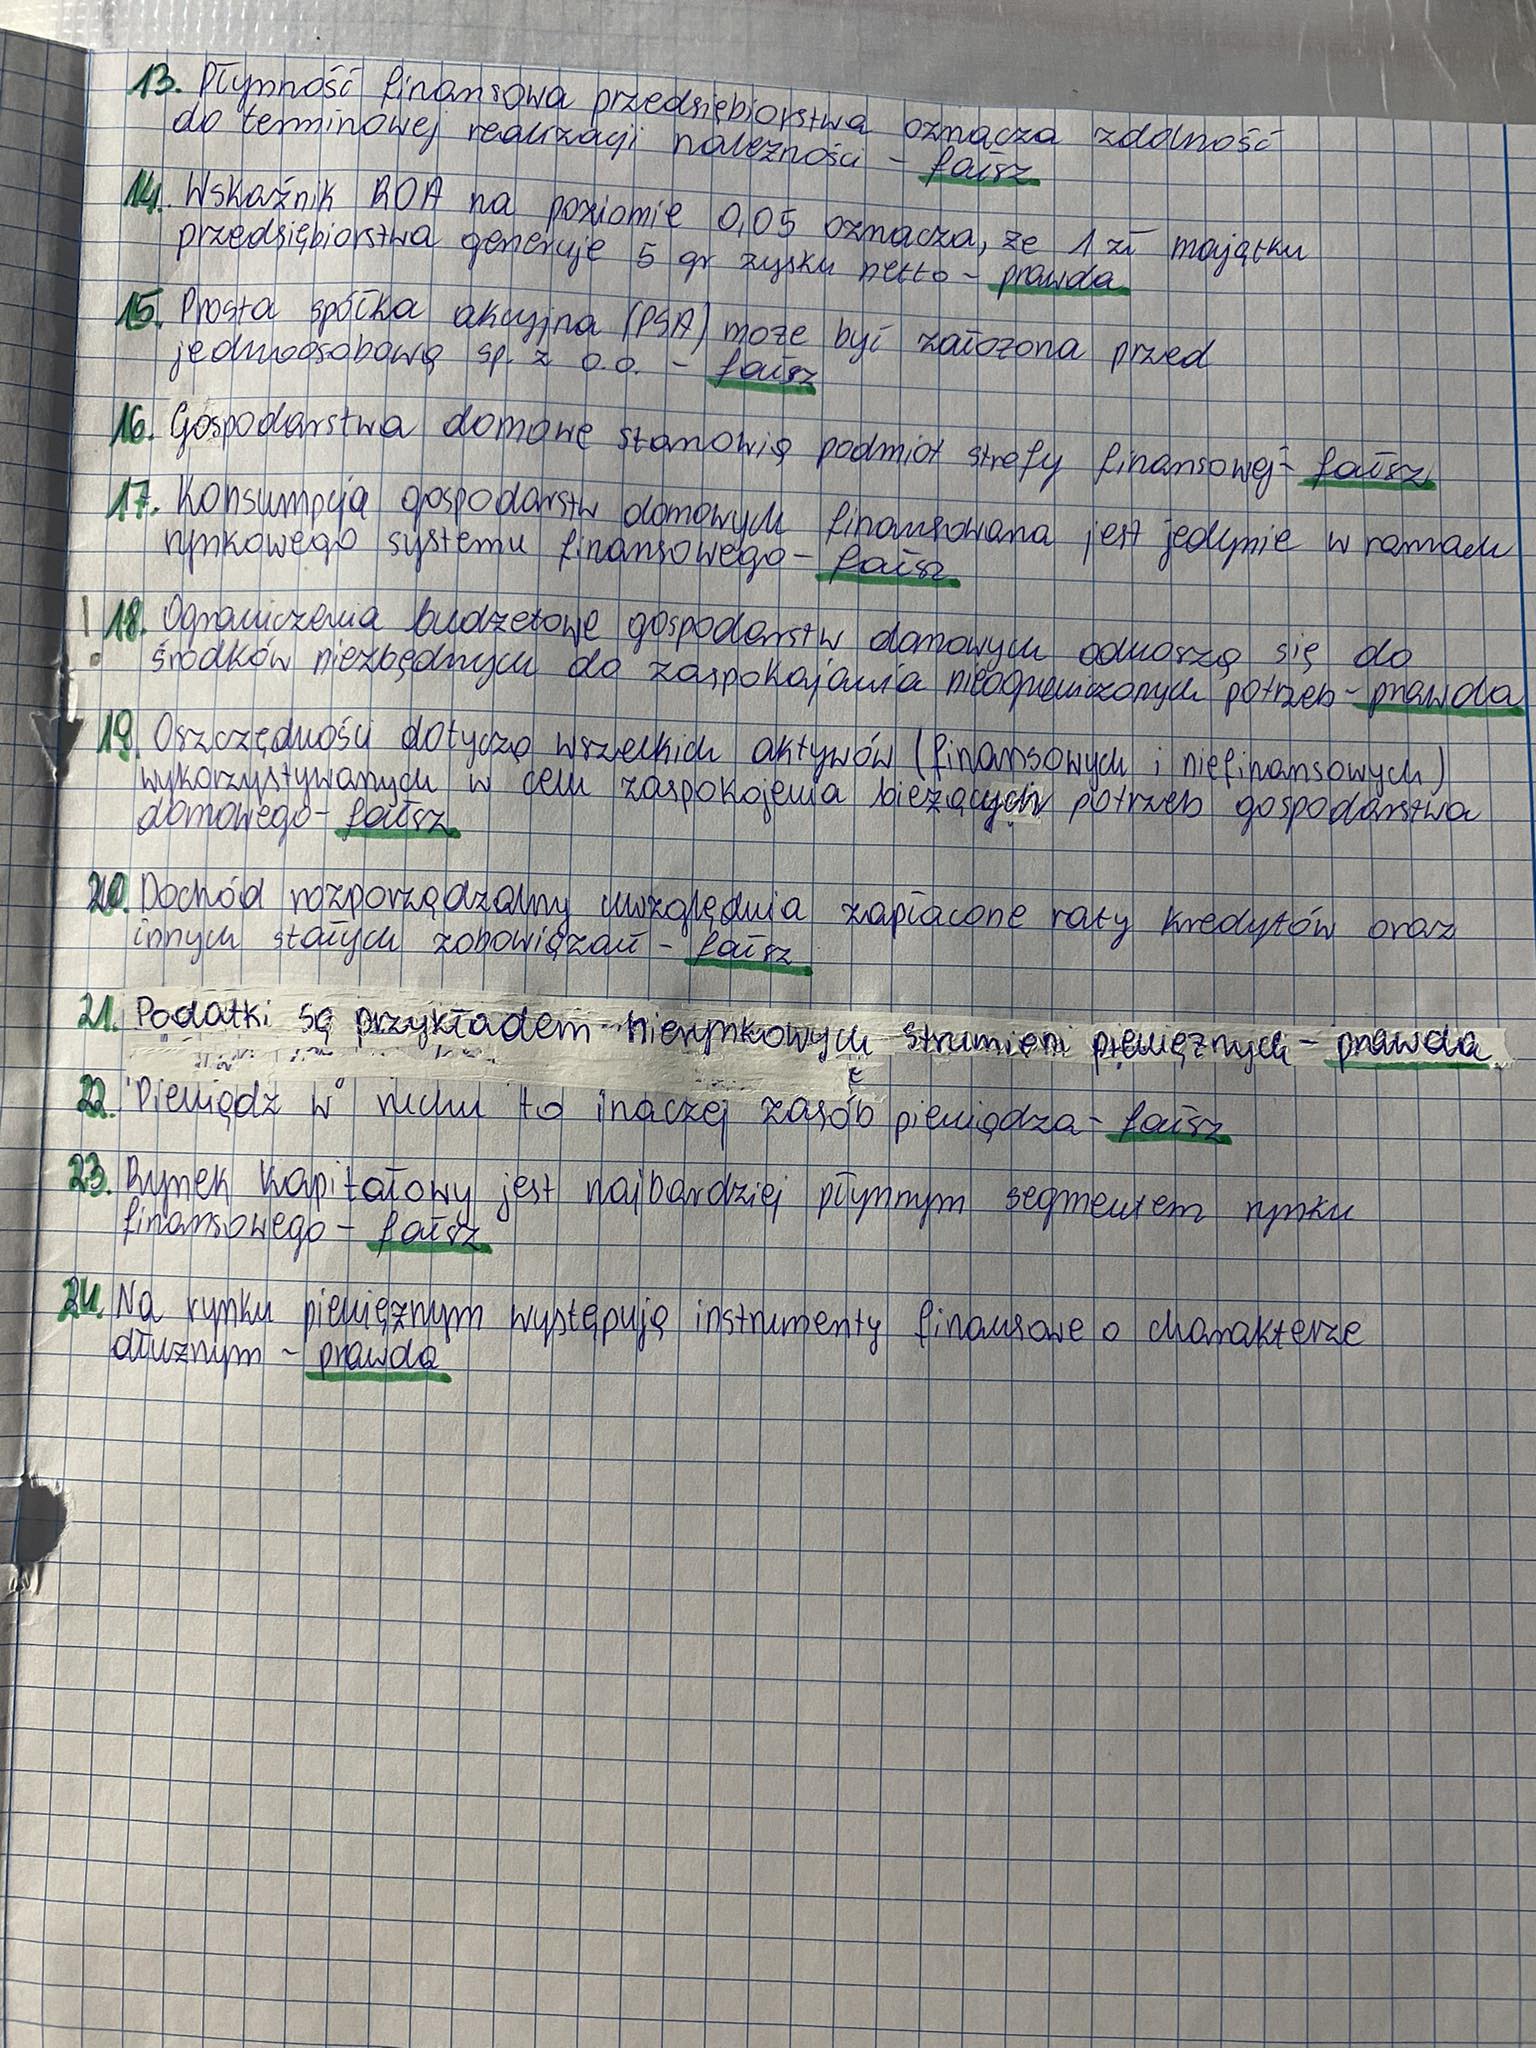 13. Płynność finansowa przedsiębiorstwa oznacza zdolność
do terminowej realizacji należności - fałsz
14. Wskaźnik ROA na poziomie 0,05 oznacza, że 1 zł majątku
przedsiębiorstwa generuje 5 gr zysku netto - prawda
15. Prosta spółka akcyjna (PSA) może być założona przed
jednoosobową sp. z o.o. - fałsz
16. Gospodarstwa domowe stanowią podmiot strefy finansowej - fałsz
17. Konsumpcja gospodarstw domowych finansowana jest jedynie w ramach
rynkowego systemu finansowego - fałsz
! 18. Ograniczenia budżetowe gospodarstw domowych odnoszą się do
środków niezbędnych do zaspokajania nieograniczonych potrzeb - prawda
19. Oszczędności dotyczą wszelkich aktywów (finansowych i niefinansowych)
wykorzystywanych w celu zaspokojenia bieżących potrzeb gospodarstwa
domowego - fałsz
20. Dochód rozporządzalny uwzględnia zapłacone raty kredytów oraz
innych stałych zobowiązań - fałsz
21. Podatki są przykładem nierynkowych strumieni pieniężnych - prawda
22. Pieniądz w ruchu to inaczej zasób pieniądza - fałsz
23. Rynek kapitałowy jest najbardziej płynnym segmentem rynku
finansowego - fałsz
24. Na rynku pieniężnym występują instrumenty finansowe o charakterze
dłużnym - prawda